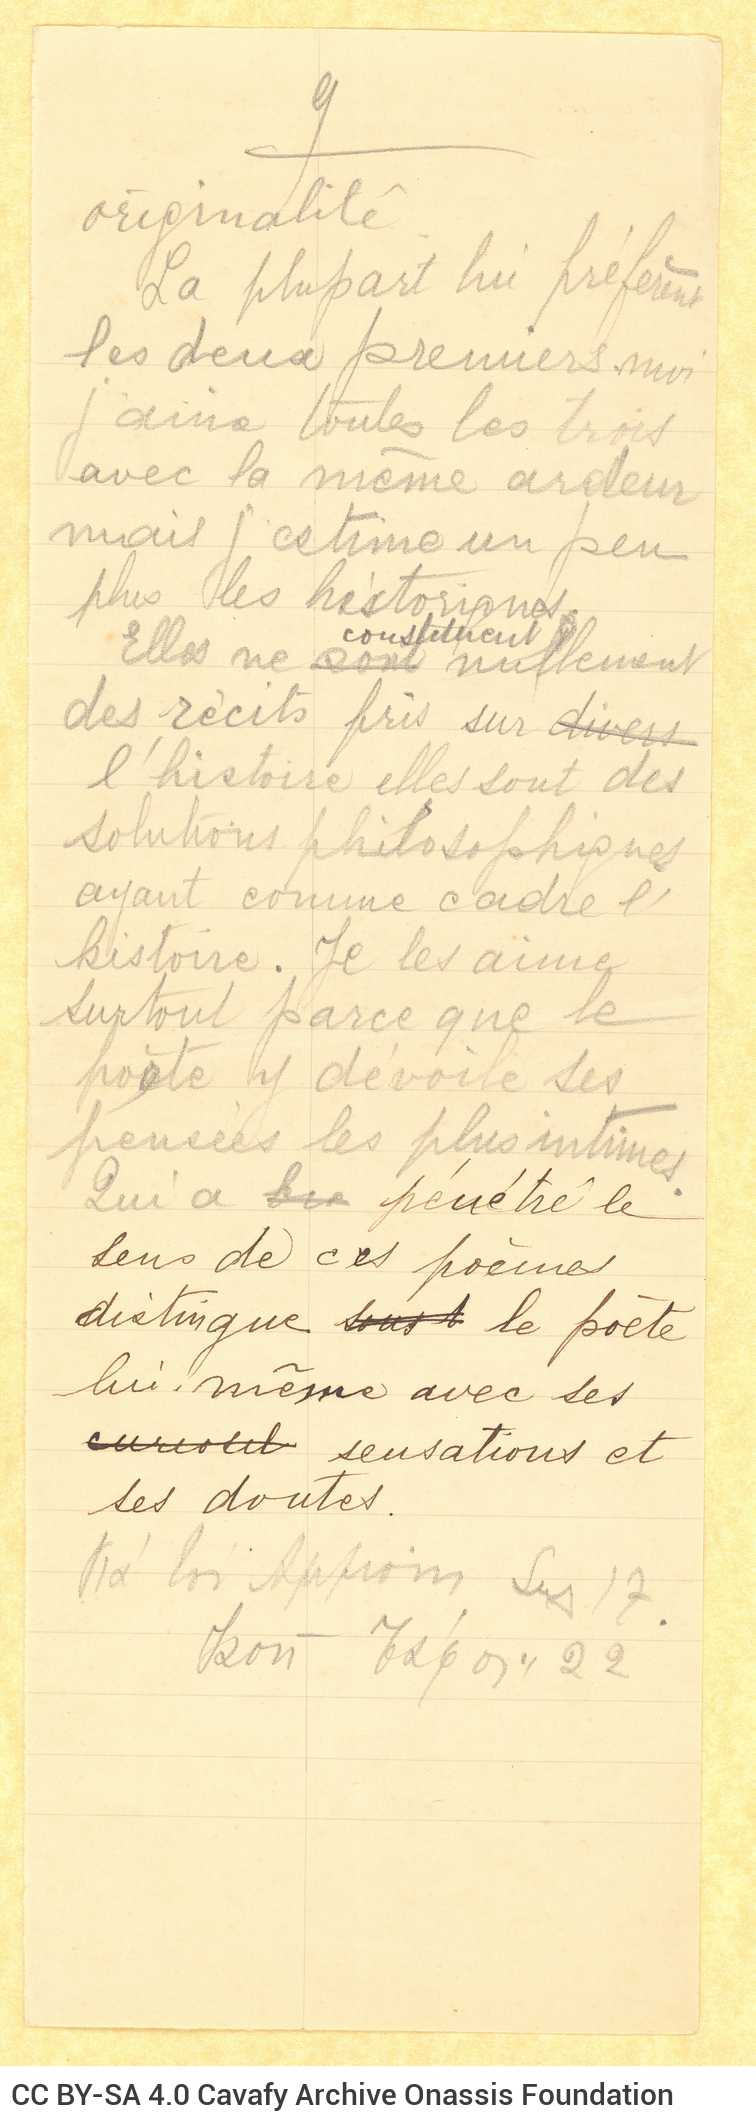 9
originalité
La plupart lui préfèrent
les deux premiers moi
j'aime toutes les trois
avec la même ardeur
mais j'estime un peu
plus les historiques.
constituent
Elles ne sont nullement
des récits pris sur divers
l'histoire elles sont des
solutions philosophiques
ayant comme cadre l'
histoire. Je les aime
surtout parce que le
poète y dévoile ses
pensées les plus intimes.
Qui a pénétré le
sens de ces poèmes
distingue sous l le poète
lui-même avec ses
sensations et
ses doutes.
17.
22
CC BY-SA 4.0 Cavafy Archive Onassis Foundation